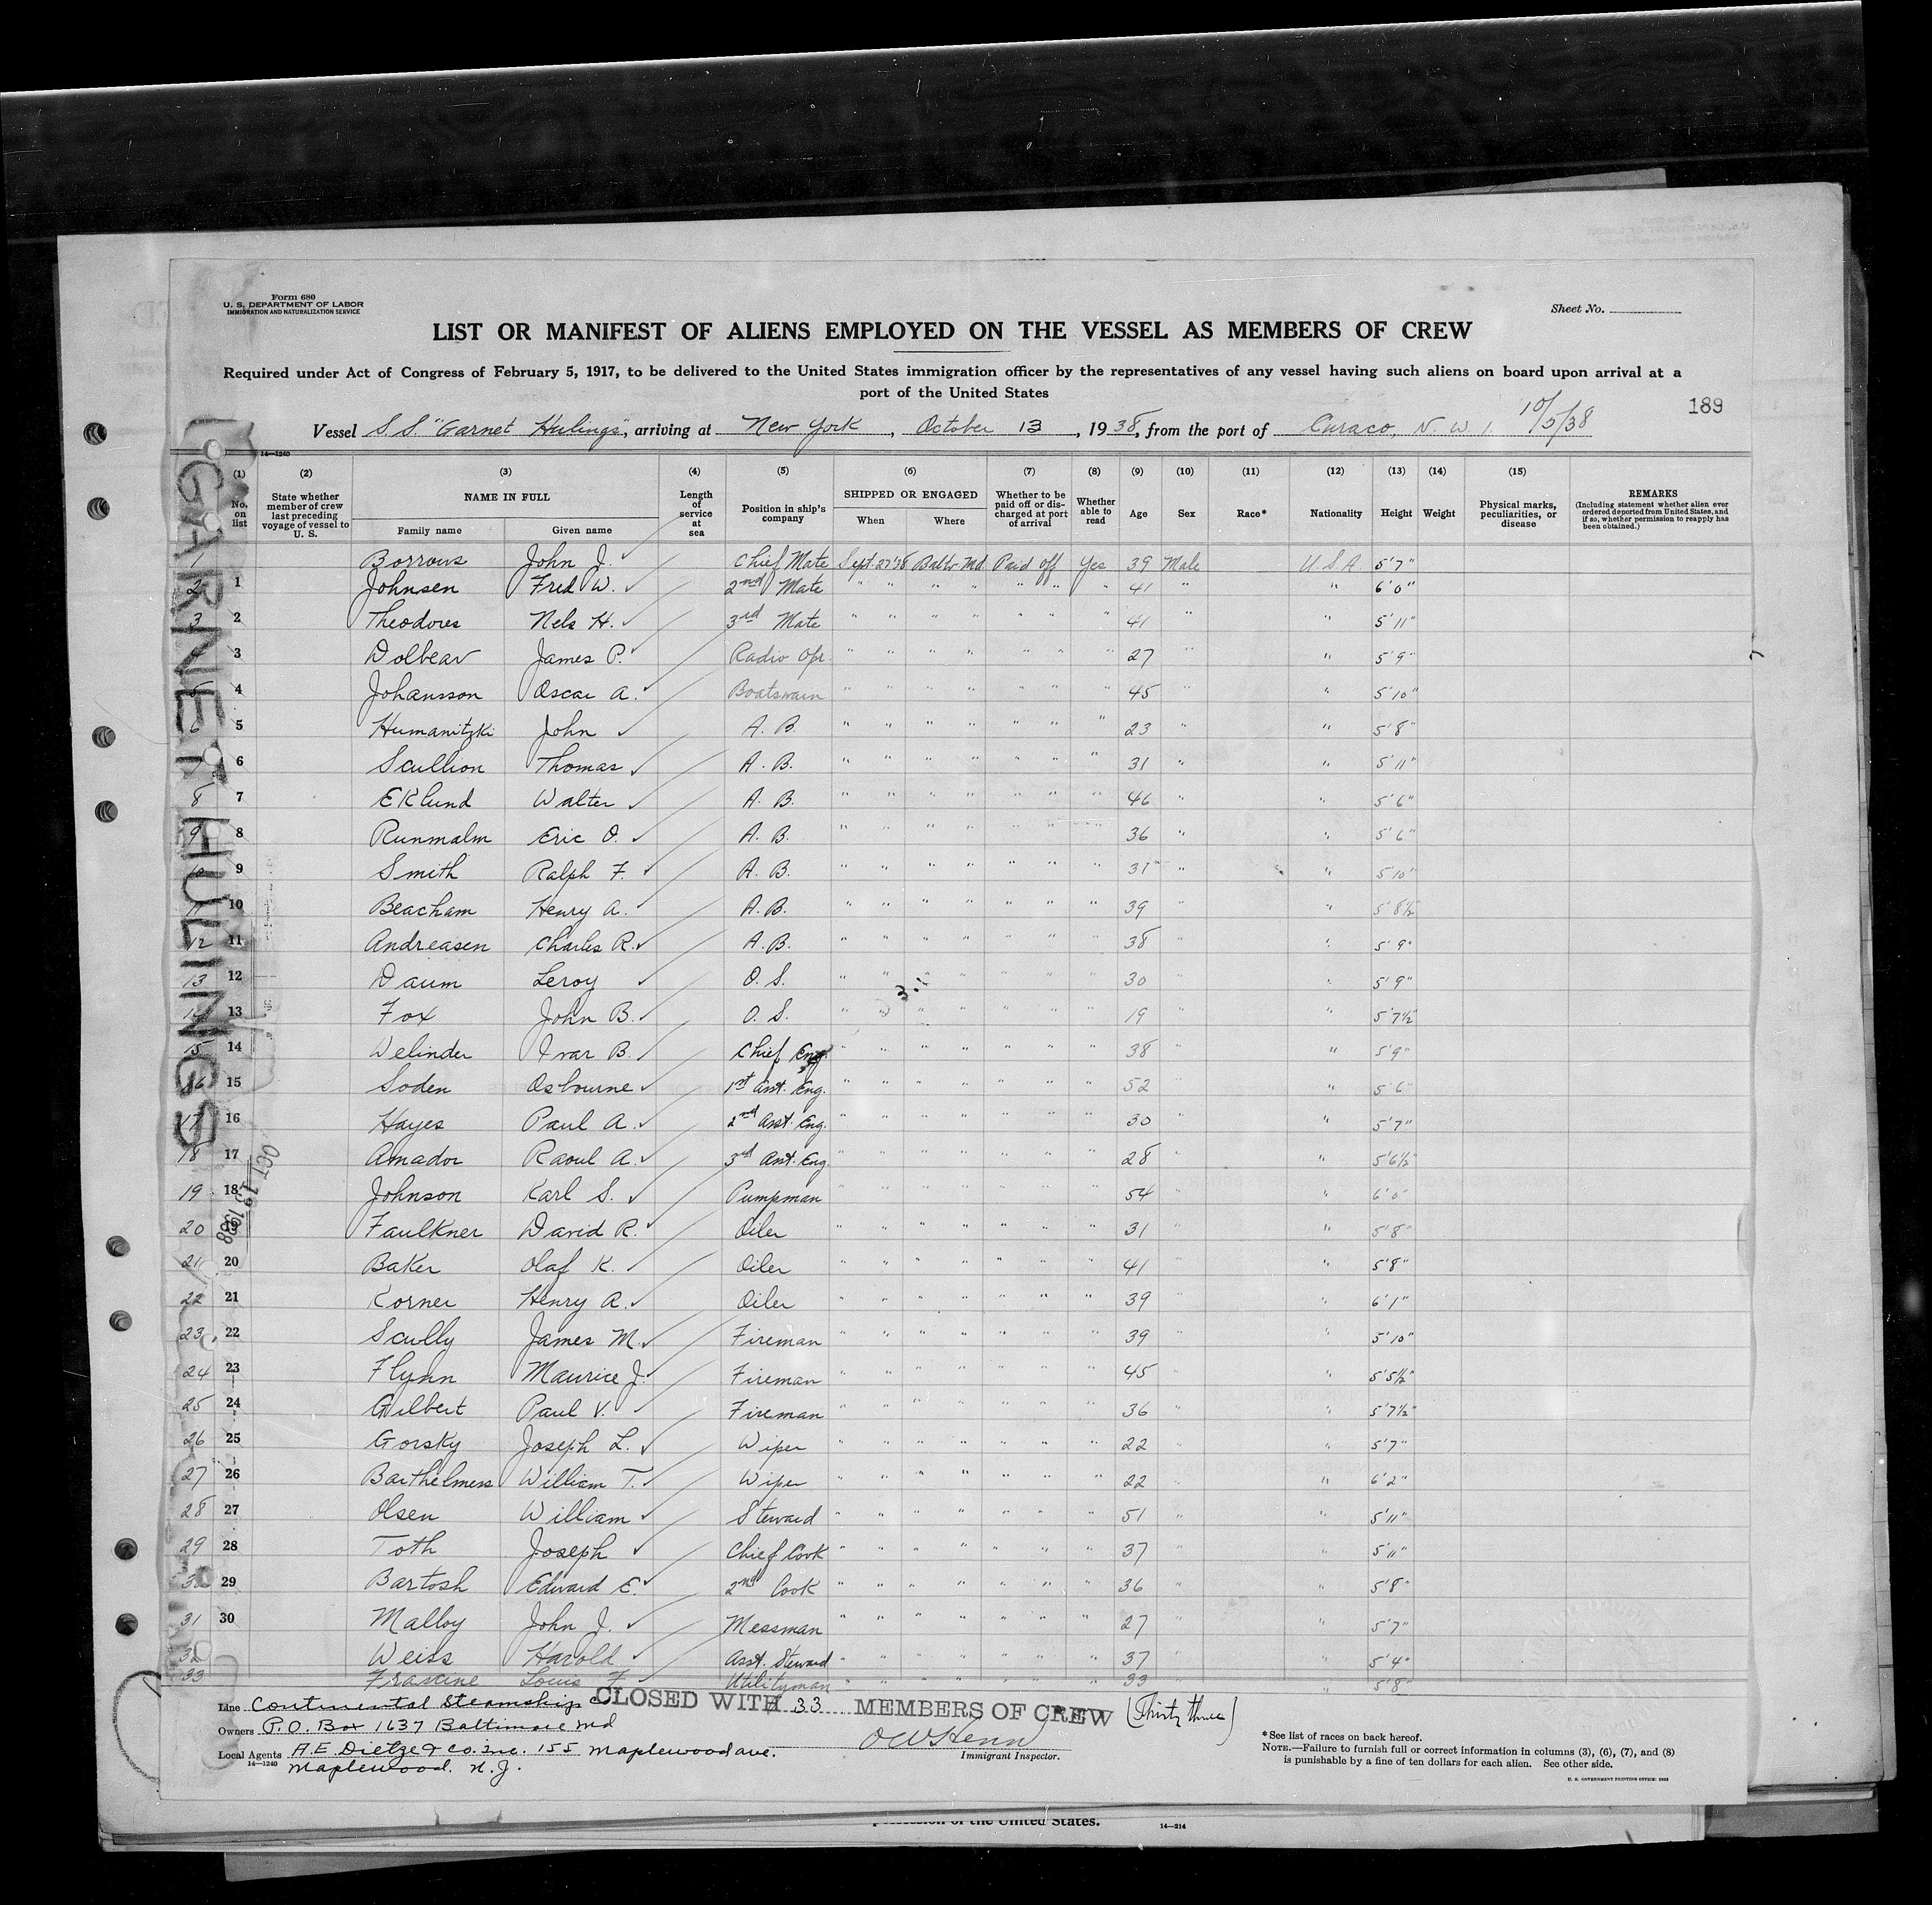 Form 680
U. S. DEPARTMENT OF LABOR
IMMIGRATION AND NATURALIZATION SERVICE
Sheet No.
LIST OR MANIFEST OF ALIENS EMPLOYED ON THE VESSEL AS MEMBERS OF CREW
Required under Act of Congress of February 5, 1917, to be delivered to the United States immigration officer by the representatives of any vessel having such aliens on board upon arrival at a
port of the United States
189
Vessel S.S. "Garnet Hulings", arriving at New York, October 13, 1938, from the port of Curaco, N. W. I. 10/5/38
14—1240
(1) (2) (3) (4) (5) (6) (7) (8) (9) (10) (11) (12) (13) (14) (15)
No. on list
State whether member of crew last preceding voyage of vessel to U. S.
NAME IN FULL
Family name Given name
Length of service at sea
Position in ship's company
SHIPPED OR ENGAGED
When Where
Whether to be paid off or discharged at port of arrival
Whether able to read
Age Sex Race* Nationality Height Weight
Physical marks, peculiarities, or disease
REMARKS
(Including statement whether alien ever ordered deported from United States, and if so, whether permission to reapply has been obtained.)
GARNET HULINGS
OCT 13 1938
1 Borrows John J. ✓ Chief Mate Sept 27 '38 Balto Md. Paid off Yes 39 Male U.S.A. 5'7"
2 1 Johnsen Fred W. ✓ 2nd Mate " " " " " " " 41 " " 6'0"
3 2 Theodores Nels H. ✓ 3rd Mate " " " " " " " 41 " " 5'11"
3 Dolbear James P. ✓ Radio Opr. " " " " " " " 27 " " 5'9"
5 4 Johansson Oscar A. ✓ Boatswain " " " " " " " 45 " " 5'10"
6 5 Humanitzki John ✓ A. B. " " " " " " " 23 " " 5'8"
7 6 Scullion Thomas ✓ A. B. " " " " " " " 31 " " 5'11"
8 7 Eklund Walter ✓ A. B. " " " " " " " 46 " " 5'6"
9 8 Runmalm Eric O. ✓ A. B. " " " " " " " 36 " " 5'6"
10 9 Smith Ralph F. ✓ A. B. " " " " " " " 31 " " 5'10"
11 10 Beacham Henry A. ✓ A. B. " " " " " " " 39 " " 5'8½
12 11 Andreasen Charles R. ✓ A. B. " " " " " " " 38 " " 5'9"
13 12 Daum Leroy ✓ O. S. " " " " " " " 30 " " 5'9"
14 13 Fox John B. ✓ O. S. " " " " " " " 19 " " 5'7½
15 14 Welinder Ivar B. ✓ Chief Eng. " " " " " " " 38 " " 5'9"
16 15 Soden Osbourne ✓ 1st Asst. Eng. " " " " " " " 52 " " 5'6"
17 16 Hayes Paul A. ✓ 2nd Asst. Eng. " " " " " " " 30 " " 5'7"
18 17 Amador Raoul A. ✓ 3rd Asst. Eng. " " " " " " " 28 " " 5'6½"
19 18 Johnson Karl S. ✓ Pumpman " " " " " " " 54 " " 6'0"
20 19 Faulkner David R. ✓ Oiler " " " " " " " 31 " " 5'8"
21 20 Baker Olaf K. ✓ Oiler " " " " " " " 41 " " 5'8"
22 21 Korner Henry A. ✓ Oiler " " " " " " " 39 " " 6'1"
23 22 Scully James M. ✓ Fireman " " " " " " " 39 " " 5'10"
24 23 Flynn Maurice J. ✓ Fireman " " " " " " " 45 " " 5'5½"
25 24 Gilbert Paul V. ✓ Fireman " " " " " " " 36 " " 5'7½"
26 25 Gorsky Joseph L. ✓ Wiper " " " " " " " 22 " " 5'7"
27 26 Barthelmess William T. ✓ Wiper " " " " " " " 22 " " 6'2"
28 27 Olsen William ✓ Steward " " " " " " " 51 " " 5'11"
29 28 Toth Joseph ✓ Chief Cook " " " " " " " 37 " " 5'11"
30 29 Bartosh Edward E. ✓ 2nd Cook " " " " " " " 36 " " 5'8"
31 30 Malloy John J. ✓ Messman " " " " " " " 27 " " 5'7"
32 Weiss Harold ✓ Asst. Steward " " " " " " " 37 " " 5'4"
33 Louis F. ✓ Utilityman " " " " " " " 33 " " 5'8"
Line Continental Steamship Co.
CLOSED WITH 33 MEMBERS OF CREW (Thirty three)
Owners P.O. Box 1637 Baltimore Md
Local Agents A.E. Dietze & Co. Inc. 155 Maplewood ave.
14—1240 Maplewood. N.J.
Immigrant Inspector.
*See list of races on back hereof.
NOTE.—Failure to furnish full or correct information in columns (3), (6), (7), and (8)
is punishable by a fine of ten dollars for each alien. See other side.
U. S. GOVERNMENT PRINTING OFFICE:
of the United States.
14—214